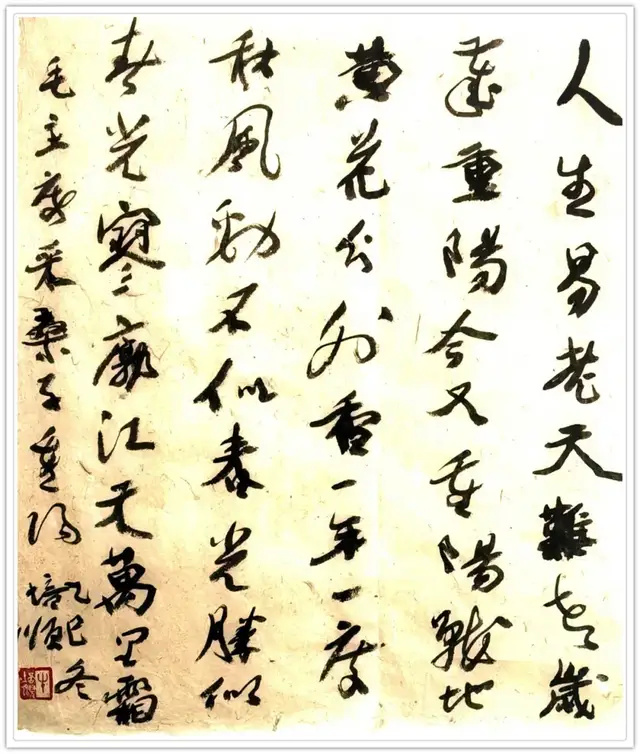 人生易老天難老歲
歲重陽今又重陽戰地
黃花分外香一年一度
秋風勁不似春光勝似
春光寥廓江天萬里霜
毛主席采桑子重陽
乙巳冬
培順